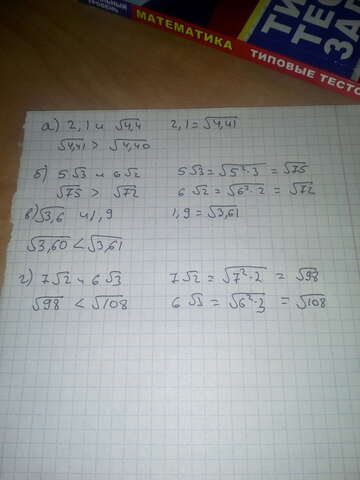 МАТЕМАТИКА
ТИПОВЫЕ ТЕС
а) 2,1 и √4,4 2,1 = √4,41
√4,41 > √4,40
б) 5√3 и 6√2 5√3 = √5²·3 = √75
√75 > √72 6√2 = √6²·2 = √72
в) √3,6 и 1,9 1,9 = √3,61
√3,60 < √3,61
г) 7√2 и 6√3 7√2 = √7²·2 = √98
√98 < √108 6√3 = √6²·3 = √108